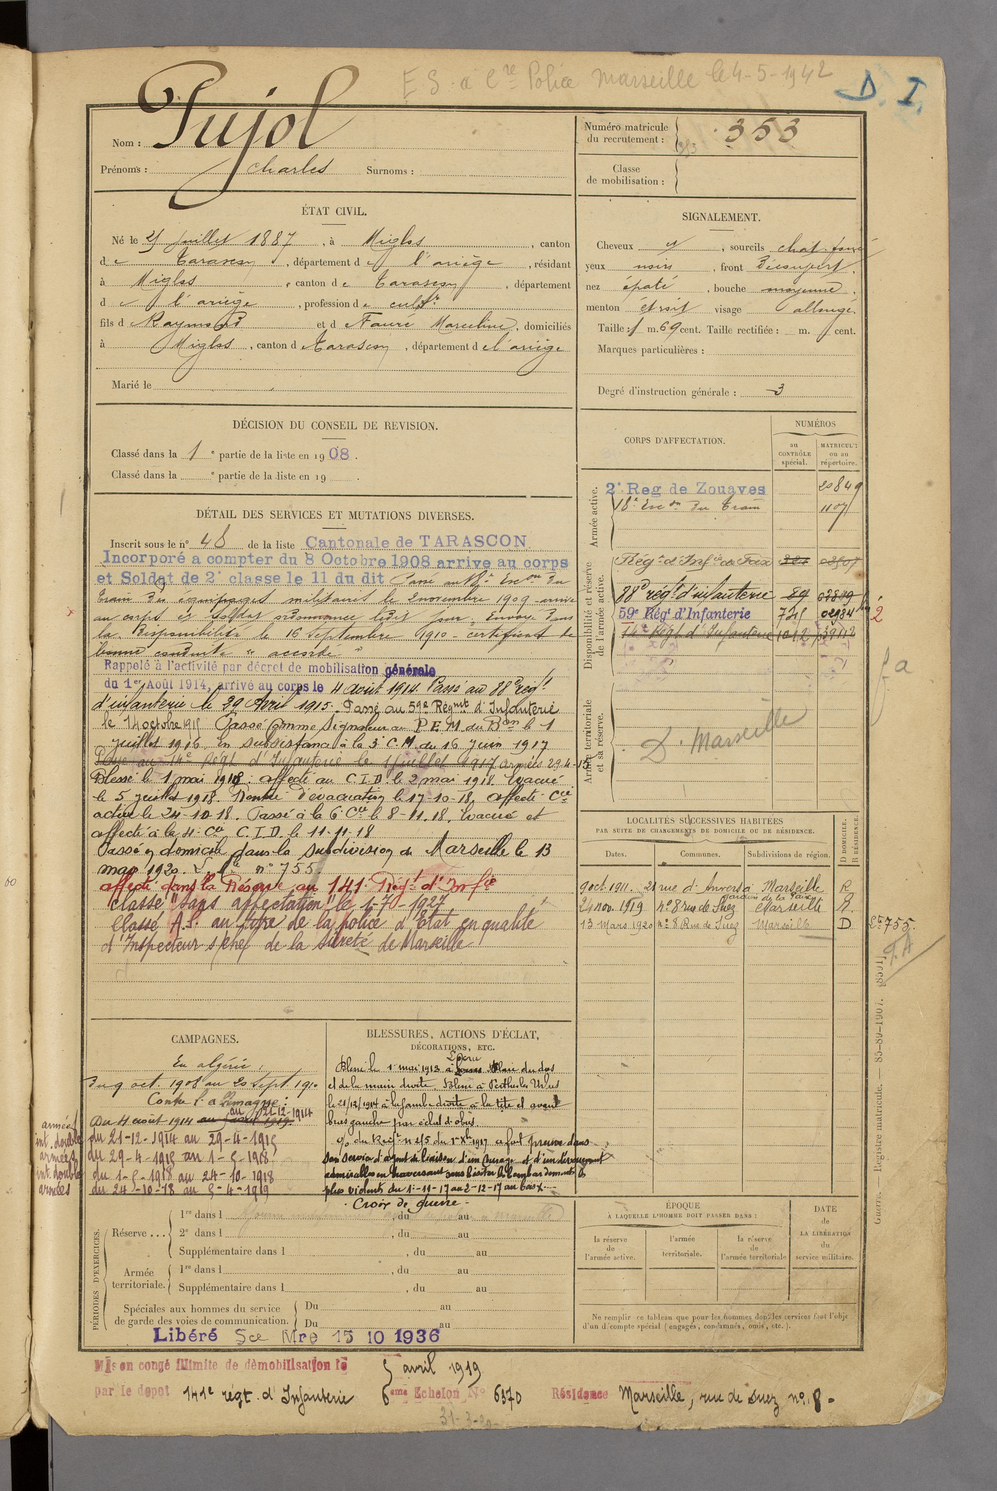 E S. a Cre Police Marseille le 4-5-1942
D. I.
Nom : Pujol
Prénoms : Charles Surnoms :
Numéro matricule du recrutement : 353
Classe de mobilisation :
ÉTAT CIVIL.
Né le juillet 1887, à Miglos, canton
de Tarascon, département de l'ariège, résidant
à Miglos, canton de Tarascon, département
de l'ariège, profession de cultr
fils d Raymond et d Fauré Marceline, domiciliés
à Miglos, canton d Tarascon, département de l'ariège
Marié le
SIGNALEMENT.
Cheveux , sourcils chat. foncé
yeux noirs, front Découvert.
nez épaté, bouche moyenne.
menton étroit visage allongé.
Taille : 1 m. 69 cent. Taille rectifiée : m. cent.
Marques particulières :
Degré d'instruction générale : 3
DÉCISION DU CONSEIL DE REVISION.
Classé dans la 1e partie de la liste en 1908.
Classé dans la e partie de la liste en 19 .
DÉTAIL DES SERVICES ET MUTATIONS DIVERSES.
Inscrit sous le n° 48 de la liste Cantonale de TARASCON
Incorporé a compter du 8 Octobre 1908 arrive au corps
et Soldat de 2e classe le 11 du dit Passé au 18e Escon du
Train des équipages militaires le 2 novembre 1909 arrivé
au corps et soldat ordonnance ledit jour. Envoyé dans
la Disponibilité le 16 Septembre 1910 - certificat de
bonne conduite "accordé"
Rappelé à l'activité par décret de mobilisation générale
du 1er Août 1914, arrivé au corps le 4 août 1914. Passé au 88e régt
d'infanterie le 29 Avril 1915. Passé au 59e Régmt d'Infanterie
le 14 octobre 1915 Passé comme signaleur au P E M du Bon le 1
juillet 1916. En subsistance à la 3e C.M. du 16 juin 1917
Passé au 14e Régt d'Infanterie le 1 juillet 1917 armées 29.4.15
Blessé le 1 mai 1918. affecté au C.I.D. le 2 mai 1918. Evacué
le 5 juillet 1918. Rentré d'évacuation le 17-10-18. affecté Cie
active le 24-10-18. Passé à la 6e Cie le 8-11.18. Evacué et
affecté à la 4e Cie C.I.D. le 11-11-18
Passé en domicile dans la subdivision de Marseille le 13
mars 1920. n° 755
affecté dans la Réserve au 141e Régt d'Infie
Classé "sans affectation" le 1-7-1927
Classé A.S. au titre de la police d'Etat en qualité
d'Inspecteur s/chef de la Sûreté de Marseille
CORPS D'AFFECTATION.
NUMÉROS
au CONTRÔLE spécial.
MATRICULE ou au répertoire.
Armée active.
2e Reg de Zouaves 20849
18e Escon du Train 1107
Disponibilité et réserve de l'armée active.
Régt d'Infie de Foix
88e régt d'infanterie
59e Régt d'Infanterie
14e Régt d'Infanterie
Armée territoriale et sa réserve.
D. Marseille
LOCALITÉS SUCCESSIVES HABITÉES
PAR SUITE DE CHANGEMENTS DE DOMICILE OU DE RÉSIDENCE.
Dates. Communes. Subdivisions de région. D DOMICILE. R RÉSIDENCE.
9 oct. 1911. 21 rue d'Anvers à Marseille R
24 nov. 1919 n° 8 rue de Suez Marseille R
13 Mars 1920 n° 8 Rue de Suez Marseille D
755.
CAMPAGNES.
En algérie,
Du 9 oct. 1908 au 20 Sept. 1910
Contre l'allemagne :
Du 4 août 1914 au 21-12-1914
int. double du 21-12-1914 au 29-4-1915
armées du 29-4-1915 au 1-5-1918
int. double du 1-5-1918 au 24-10-1918
armées du 24-10-18 au 5-4-1919
BLESSURES, ACTIONS D'ÉCLAT, DÉCORATIONS, ETC.
Blessé le 1 mai 1918 à Plaie du dos
et de la main droite. Blessé à Perthe les Hurlus
le 21/12/1914 à la jambe droite à la tête et avant
bras gauche par éclat d'obus.
du Régt n° 215 du 1er Xbre 1917 a fait preuve dans
son service d'agent de liaison d'un courage et d'un dévouement
admirables en traversant sans hésiter les bombardements les
plus violents du 1-11-17 au 2-12-17 au
Croix de guerre.
PÉRIODES D'EXERCICES.
Réserve... 1re dans l , du au
2e dans l , du au
Supplémentaire dans l , du au
Armée territoriale. 1re dans l , du au
Supplémentaire dans l , du au
Spéciales aux hommes du service de garde des voies de communication. Du au
Du au
Libéré Sce Mre 15 10 1936
ÉPOQUE
À LAQUELLE L'HOMME DOIT PASSER DANS :
la réserve de l'armée active.
l'armée territoriale.
la réserve de l'armée territoriale
DATE de LA LIBÉRATION du service militaire.
Ne remplir ce tableau que pour les hommes dont les services font l'objet
d'un décompte spécial (engagés, condamnés, omis, etc.).
Guerre. — Registre matricule. — 85-89-1907.
Mis en congé illimité de démobilisation le 5 avril 1919
par le depot 141e régt. d'Infanterie 6eme Echelon N° 6370 Résidence Marseille, rue de Suez n° 8.
31-3-20